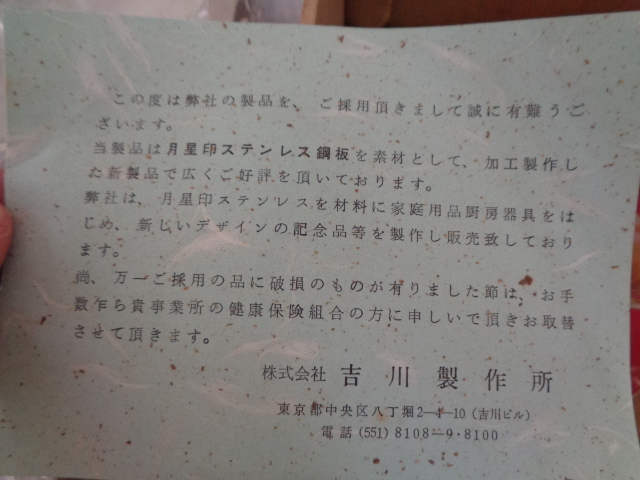 この度は弊社の製品を、ご採用頂きまして誠に有難うご
ざいます。
当製品は月星印ステンレス鋼板を素材として、加工製作し
た新製品で広くご好評を頂いております。
弊社は、月星印ステンレスを材料に家庭用品厨房器具をは
じめ、新しいデザインの記念品等を製作し販売致しており
ます。
尚、万一ご採用の品に破損のものが有りました節は、お手
数乍ら貴事業所の健康保険組合の方に申しいで頂きお取替
させて頂きます。
株式会社 吉川製作所
東京都中央区八丁堀2―4―10（吉川ビル）
電話 (551) 8108―9・8100